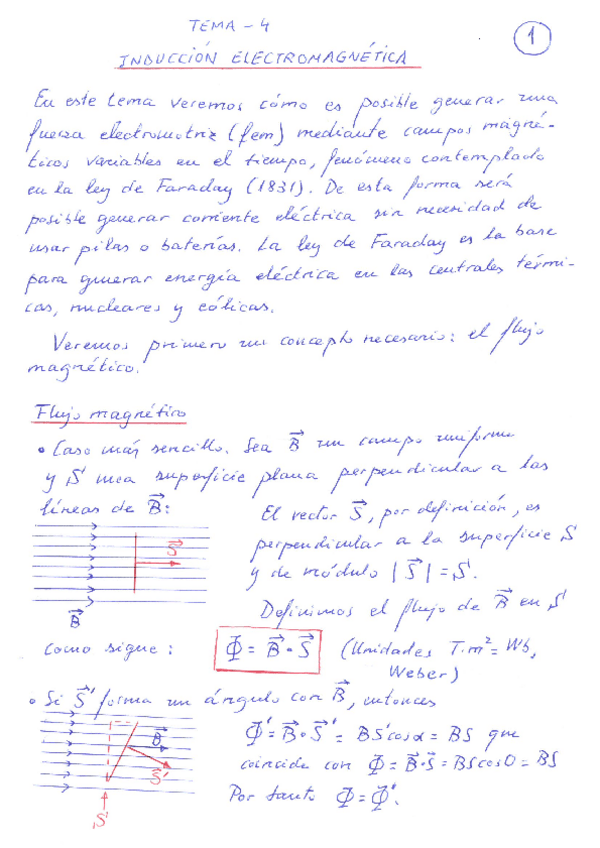 TEMA - 4
1
INDUCCIÓN ELECTROMAGNÉTICA
En este tema veremos cómo es posible generar una
fuerza electromotriz (fem) mediante campos magné-
ticos variables en el tiempo, fenómeno contemplado
en la ley de Faraday (1831). De esta forma será
posible generar corriente eléctrica sin necesidad de
usar pilas o baterías. La ley de Faraday es la base
para generar energía eléctrica en las centrales térmi-
cas, nucleares y eólicas.
Veremos primero un concepto necesario: el flujo
magnético.
Flujo magnético
• Caso más sencillo. Sea B⃗ un campo uniforme
y S una superficie plana perpendicular a las
líneas de B⃗:
El vector S⃗, por definición, es
perpendicular a la superficie S
y de módulo |S⃗| = S.
S⃗
B⃗
Definimos el flujo de B⃗ en S
como sigue: Φ = B⃗ • S⃗ (Unidades T·m² = Wb,
Weber)
• Si S⃗' forma un ángulo con B⃗, entonces
Φ' = B⃗ • S⃗' = BS'cosα = BS que
coincide con Φ = B⃗ • S⃗ = BS cos0 = BS
Por tanto Φ = Φ'.
B⃗
S⃗'
S